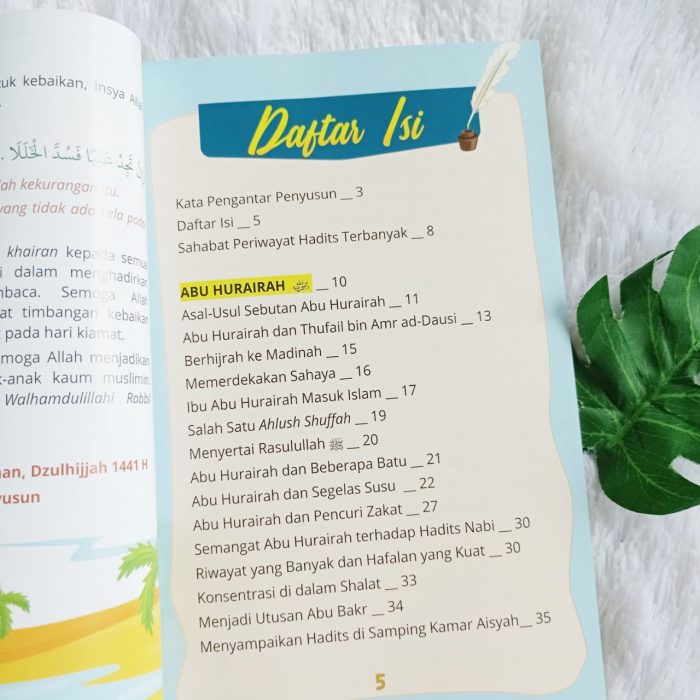 uk kebaikan, insya Alla
إِنْ تَجِدْ عَيْبًا فَسُدَّ الْخَلَلَا .
lah kekurangan itu.
yang tidak ada cela pada
khairan kepada semua
i dalam menghadirkan
mbaca. Semoga Allah
at timbangan kebaikan
pada hari kiamat.
moga Allah menjadikan
k-anak kaum muslimin.
Walhamdulillahi Rabbil
an, Dzulhijjah 1441 H
yusun
Daftar Isi
Kata Pengantar Penyusun __ 3
Daftar Isi __ 5
Sahabat Periwayat Hadits Terbanyak __ 8
ABU HURAIRAH __ 10
Asal-Usul Sebutan Abu Hurairah __ 11
Abu Hurairah dan Thufail bin Amr ad-Dausi __ 13
Berhijrah ke Madinah __ 15
Memerdekakan Sahaya __ 16
Ibu Abu Hurairah Masuk Islam __ 17
Salah Satu Ahlush Shuffah __ 19
Menyertai Rasulullah ﷺ __ 20
Abu Hurairah dan Beberapa Batu __ 21
Abu Hurairah dan Segelas Susu __ 22
Abu Hurairah dan Pencuri Zakat __ 27
Semangat Abu Hurairah terhadap Hadits Nabi __ 30
Riwayat yang Banyak dan Hafalan yang Kuat __ 30
Konsentrasi di dalam Shalat __ 33
Menjadi Utusan Abu Bakr __ 34
Menyampaikan Hadits di Samping Kamar Aisyah__ 35
5